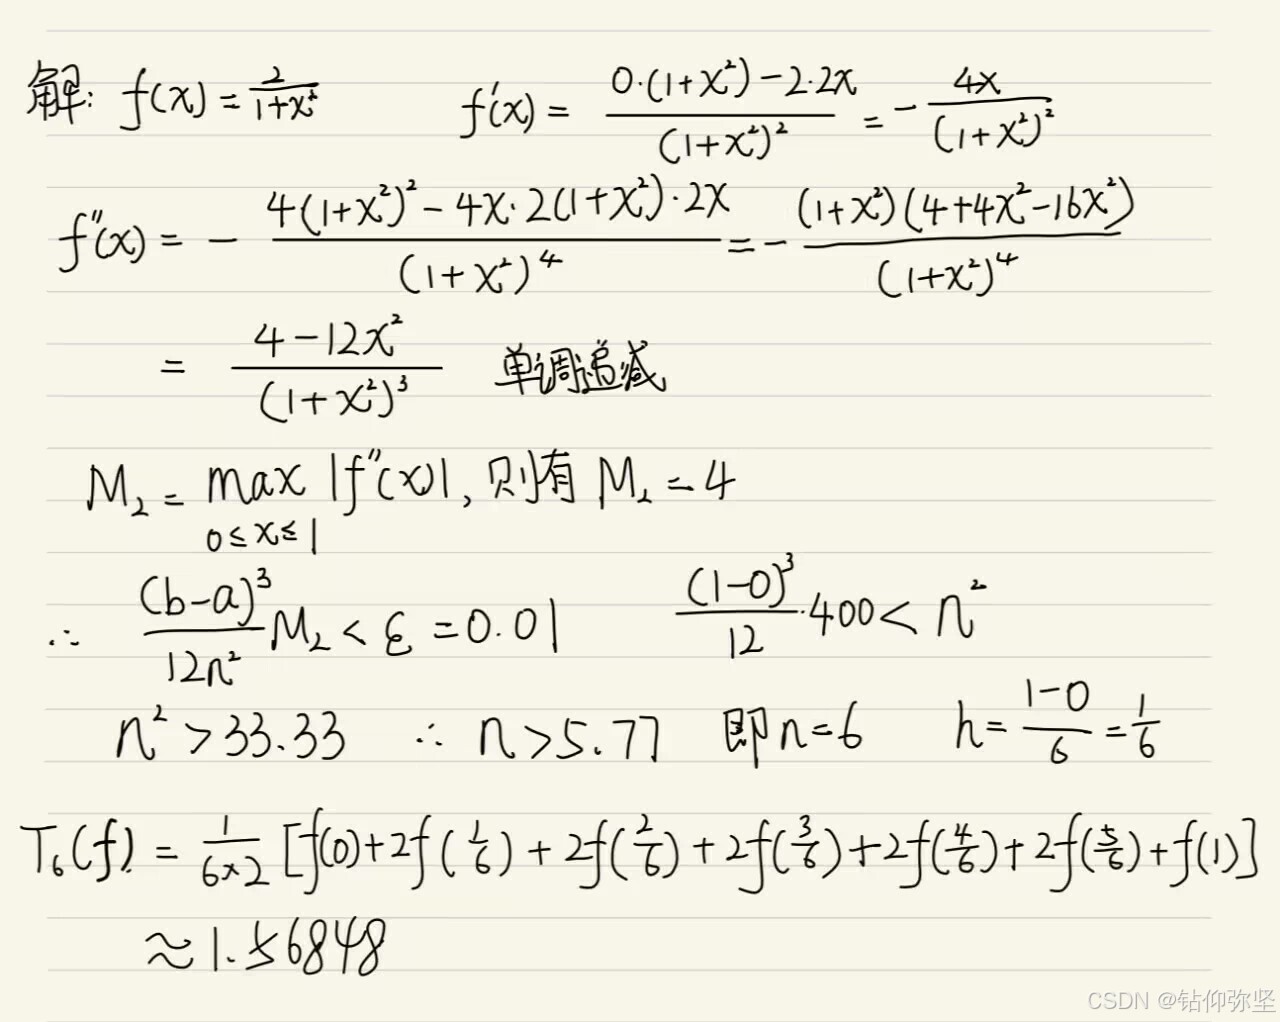 解: f(x) = 2/(1+x²)    f'(x) = (0·(1+x²)-2·2x)/(1+x²)² = -4x/(1+x²)²
f''(x) = - (4(1+x²)²-4x·2(1+x²)·2x)/(1+x²)⁴ = - ((1+x²)(4+4x²-16x²))/(1+x²)⁴
= (4-12x²)/(1+x²)³    单调递减
M₂ = max |f''(x)|, 则有 M₂ = 4
0≤x≤1
∴ (b-a)³/(12n²) M₂ < ε = 0.01    (1-0)³/12 ·400 < n²
n² > 33.33    ∴ n > 5.77    即 n=6    h = (1-0)/6 = 1/6
T₆(f) = 1/(6×2) [f(0)+2f(1/6)+2f(2/6)+2f(3/6)+2f(4/6)+2f(5/6)+f(1)]
≈1.56848
CSDN @钻仰弥坚